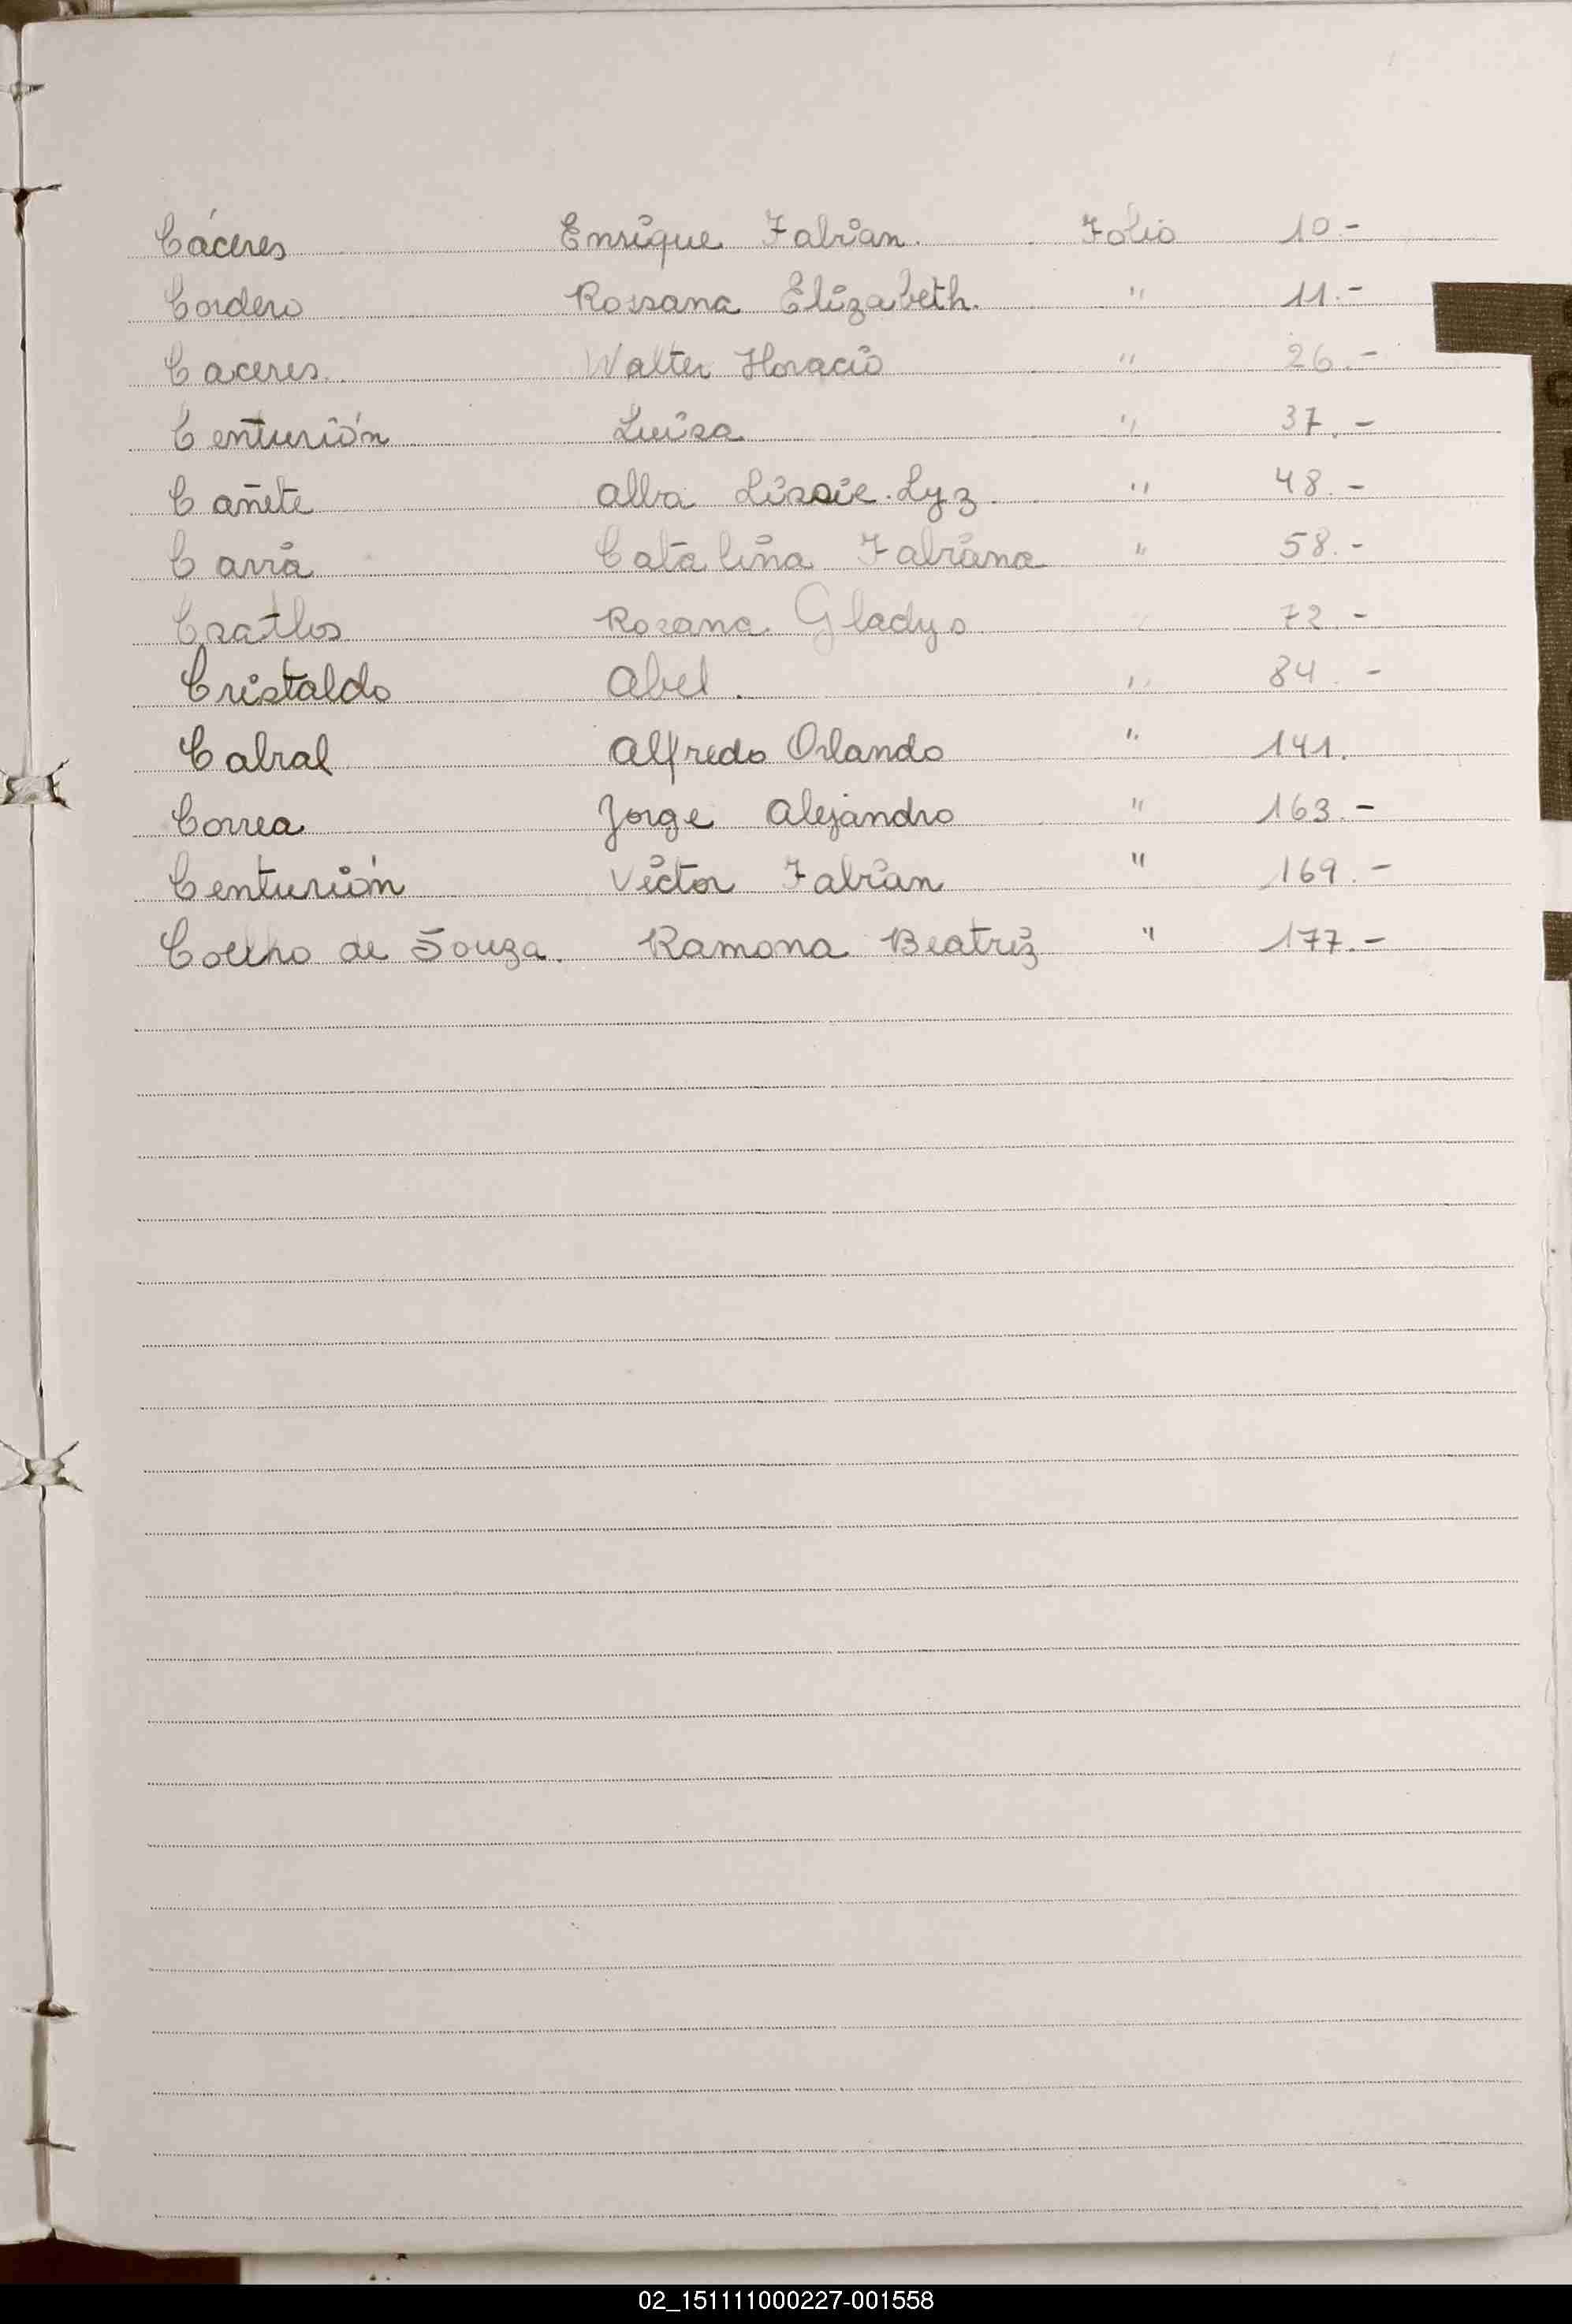 Cáceres Enrique Fabian. Folio 10.-
Cordero Rossana Elizabeth. " 11.-
Caceres. Walter Horacio " 26.-
Centurión Luisa " 37.-
Cañete Alba Lissie. Lyz. " 48.-
Carrá Catalina Fabiana " 58.-
Csatlos Rosana Gladys " 72.-
Cristaldo Abel. " 84.-
Cabral Alfredo Orlando " 141.
Correa Jorge Alejandro " 163.-
Centurión Victor Fabian " 169.-
Coelho de Souza. Ramona Beatriz " 177.-
02_151111000227-001558